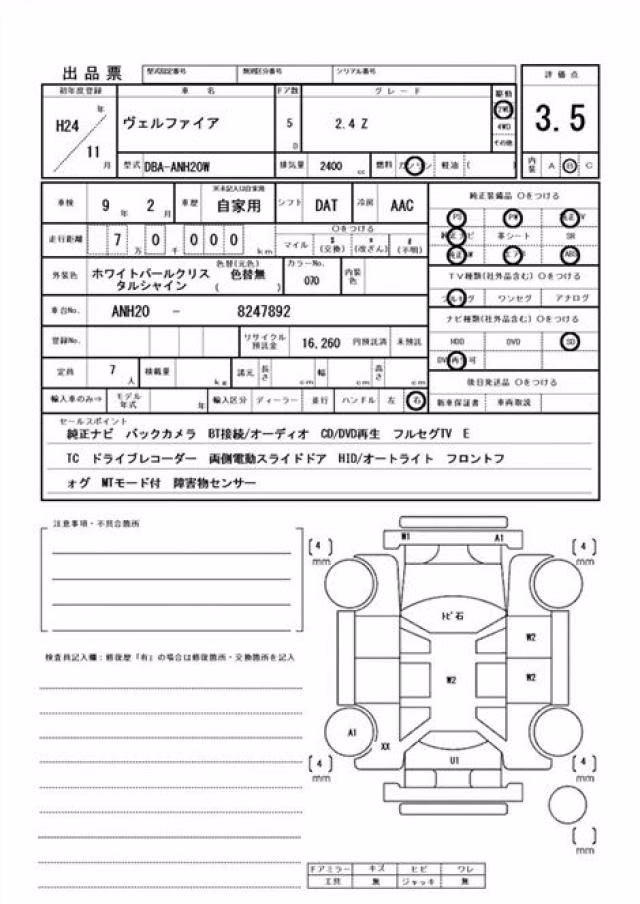 出品票 型式指定番号 類別区分番号 シリアル番号 評価点
初年度登録 車名 ドア数 グレード 駆動
H24 年 ヴェルファイア 5 D 2.4 Z 2WD 3.5
11 月 4WD
その他
型式 DBA-ANH20W 排気量 2400 cc 燃料 ガソリン 軽油 ( ) 内装 A B C
車検 9 年 2 月 車歴 ※未記入は自家用 自家用 シフト DAT 冷房 AAC 純正装備品 ○をつける
PS PW 純正TV
走行距離 7 万 0 千 0 0 0 km ○をつける 純正ナビ 革シート SR
マイル $ (交換) * (改ざん) # (不明) 純正AW エアB ABS
外装色 ホワイトパールクリスタルシャイン 色替(元色) 色替無 ( ) カラーNo. 070 内装色 TV種類(社外品含む) ○をつける
フルセグ ワンセグ アナログ
車台No. ANH20 - 8247892 ナビ種類(社外品含む) ○をつける
登録No. リサイクル預託金 16,260 円預託済 未預託 HDD DVD SD
DVD再生可
定員 7 人 積載量 kg 諸元 長さ cm 幅 cm 高さ cm 後日発送品 ○をつける
輸入車のみ⇒ モデル年式 年 輸入区分 ディーラー 並行 ハンドル 左 右 新車保証書 車両取説
セールスポイント
純正ナビ バックカメラ BT接続/オーディオ CD/DVD再生 フルセグTV E
TC ドライブレコーダー 両側電動スライドドア HID/オートライト フロントフ
ォグ MTモード付 障害物センサー
注意事項・不具合箇所
W1 A1
[4] mm [4] mm
トビ石
検査員記入欄：修復歴「有」の場合は修復箇所・交換箇所を記入
W2
W2 W2
A1 XX U1
[4] mm [4] mm
[ ] mm
ドアミラー キズ ヒビ ワレ
工具 無 ジャッキ 無